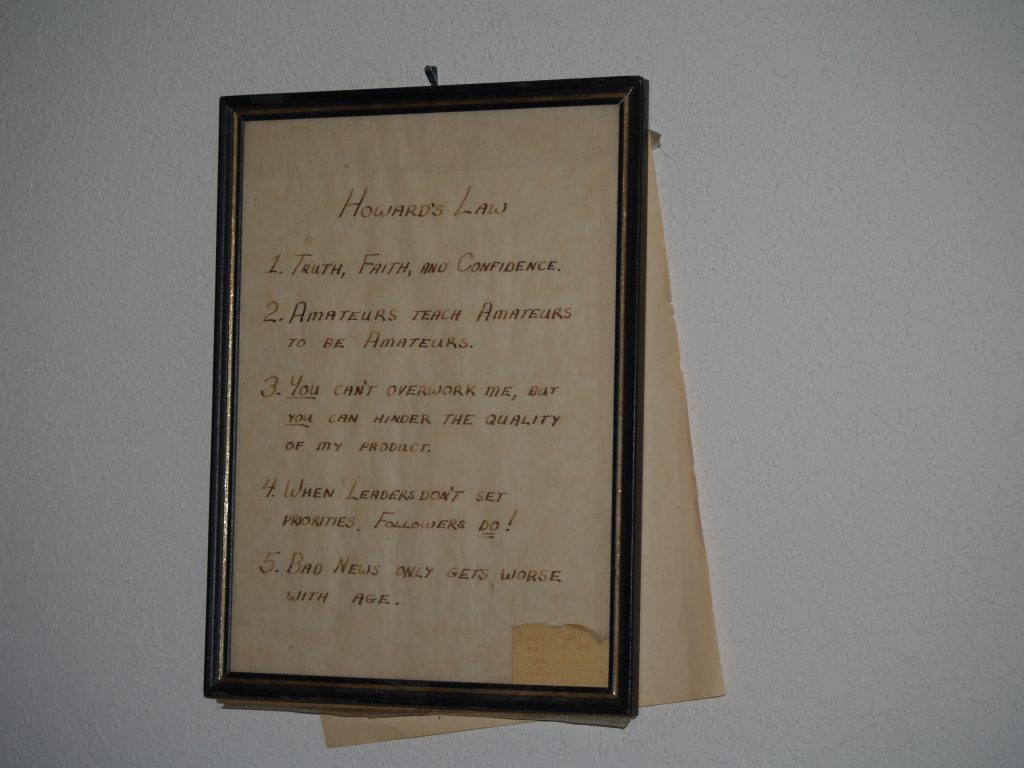 Howard's Law
1. Truth, Faith, and Confidence.
2. Amateurs teach Amateurs
to be Amateurs.
3. You can't overwork me, but
you can hinder the quality
of my product.
4. When Leaders don't set
priorities, Followers do!
5. Bad News only gets worse
with age.
Don't
to be
the